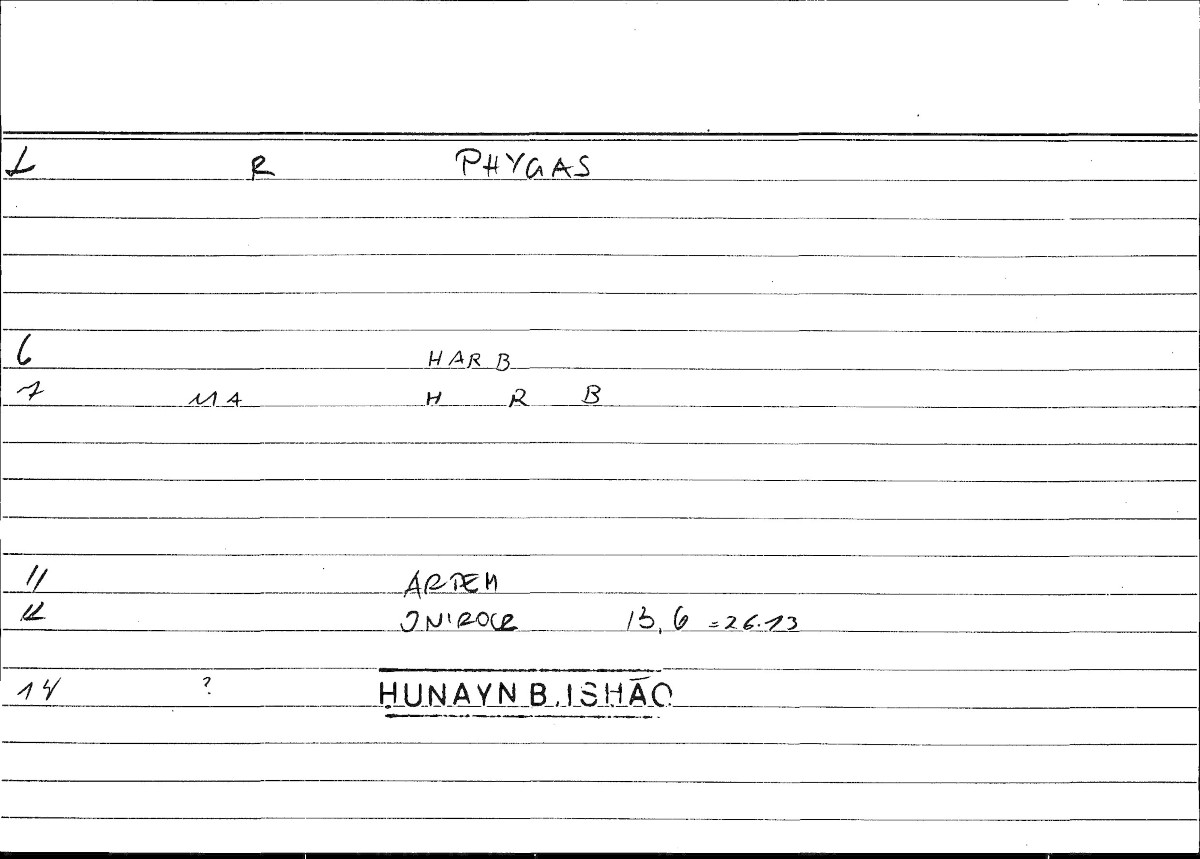 L R PHYGAS
6 HAR B
7 MA H R B
11 ARTEM
12 ONIROCR 13, 6 =26.13
14 ? ḤUNAYN B. ISHĀQ